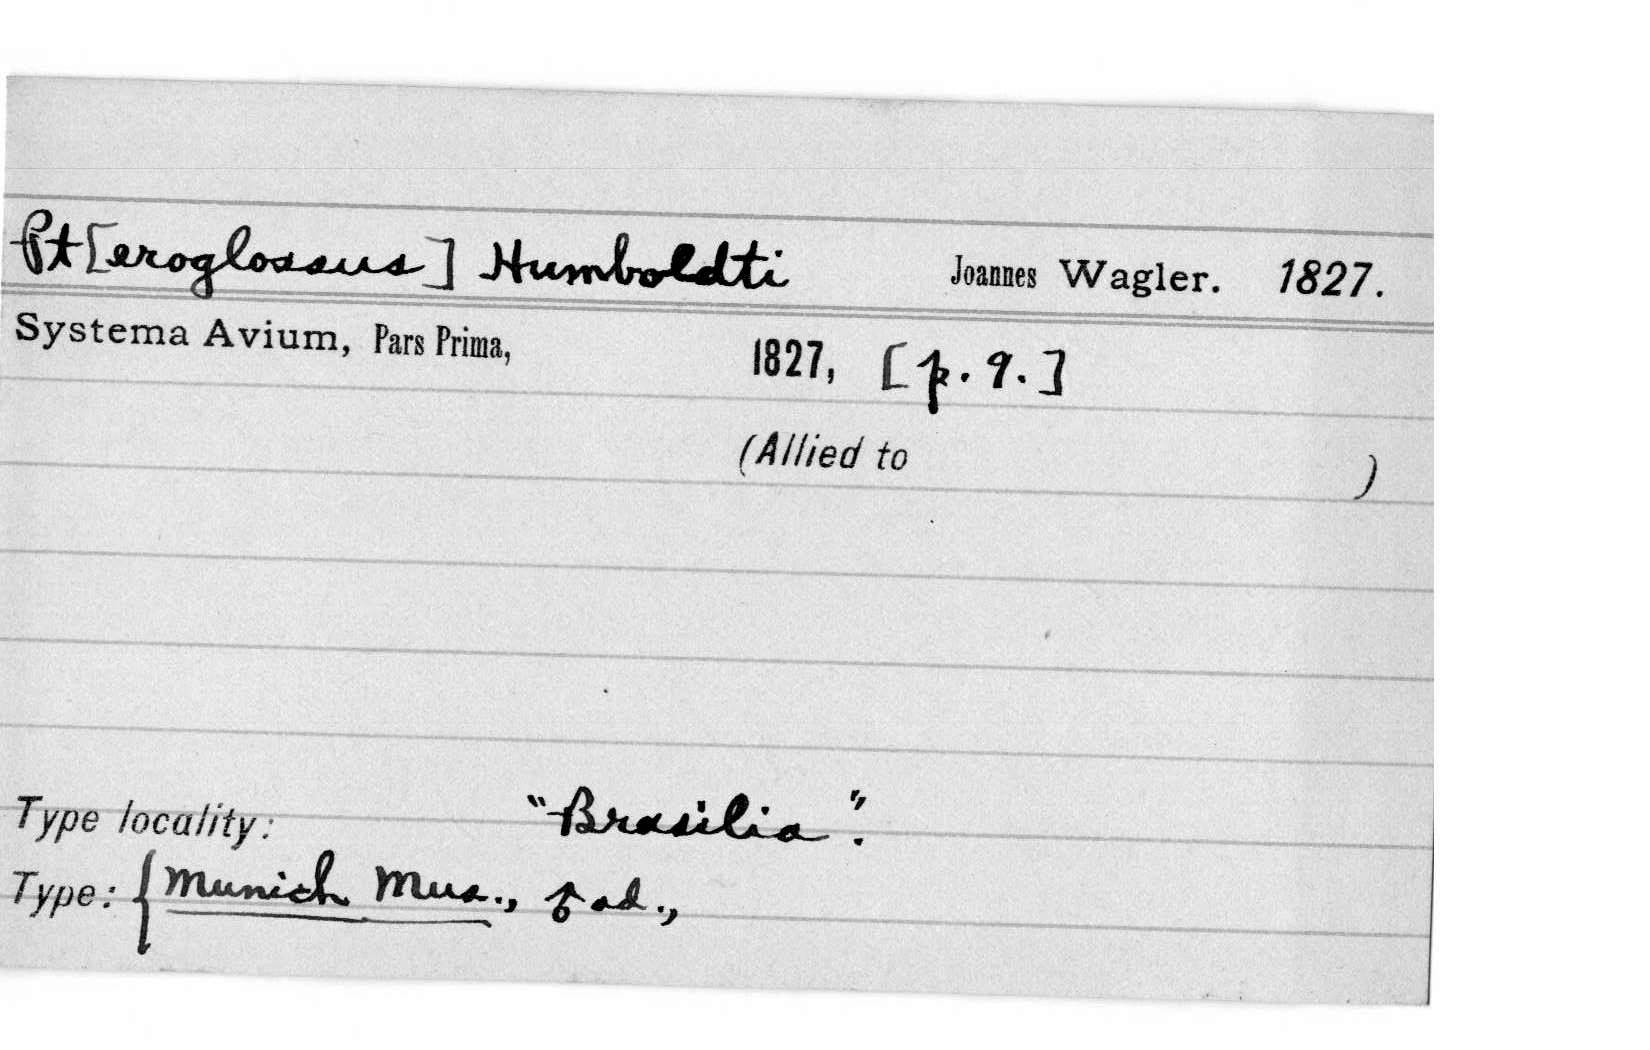 Pt[eroglossus] Humboldti Joannes Wagler. 1827.
Systema Avium, Pars Prima, 1827, [p. 9.]
(Allied to )
Type locality: "Brasilia".
Type: { Munich Mus., ♂ ad.,